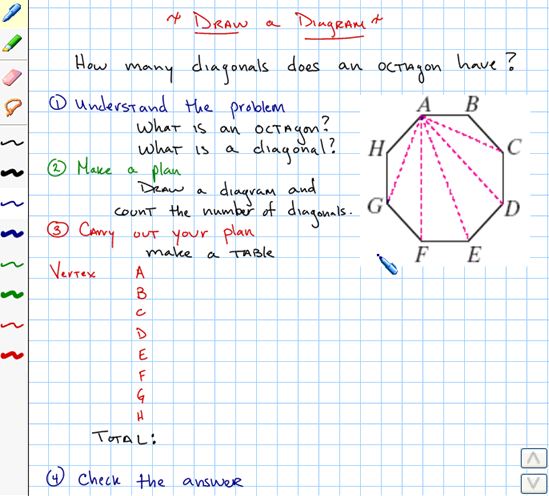 ~ DRAW a DIAGRAM ~
How many diagonals does an OCTAgon have?
① Understand the problem
What is an octagon?
What is a diagonal?
② Make a plan
DRAW a diagram and
count the number of diagonals.
③ Carry out your plan
make a TABLE
Vertex A
B
C
D
E
F
G
H
TOTAL:
④ Check the answer
A B
H C
G D
F E